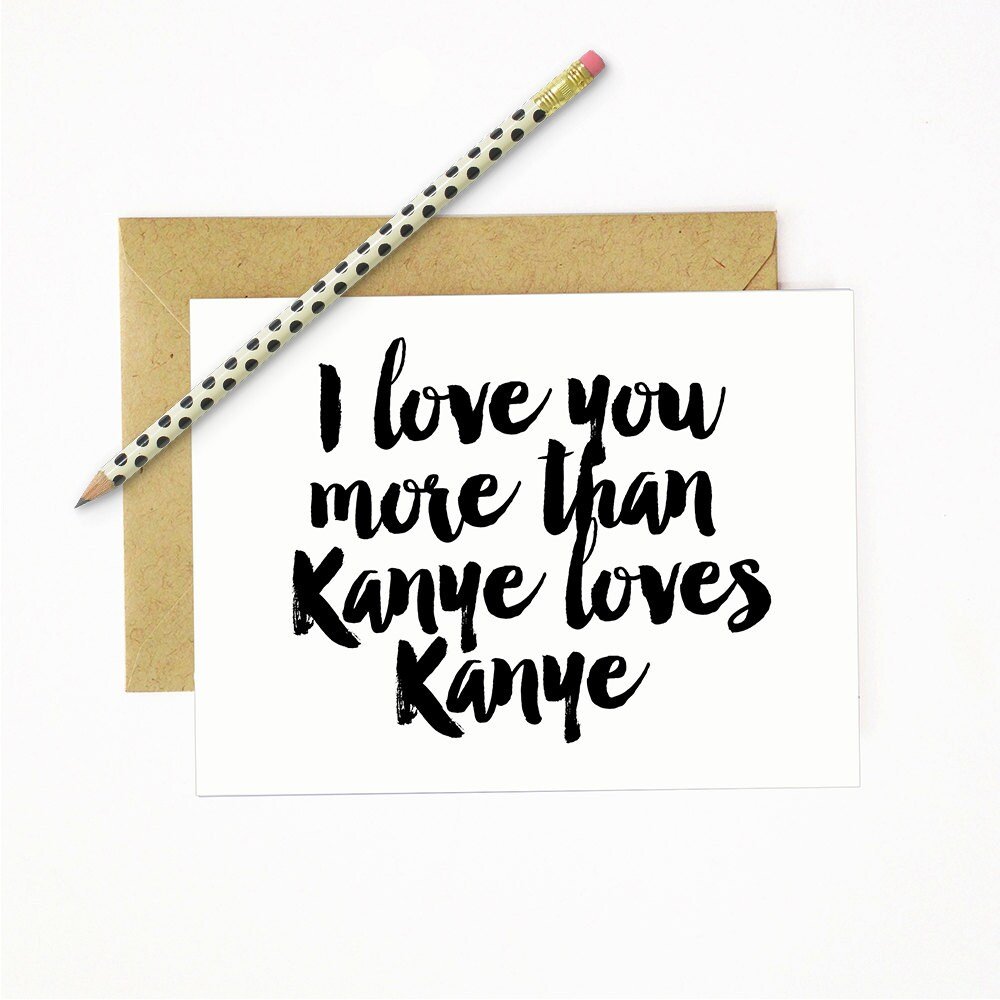 I love you
more than
Kanye loves
Kanye